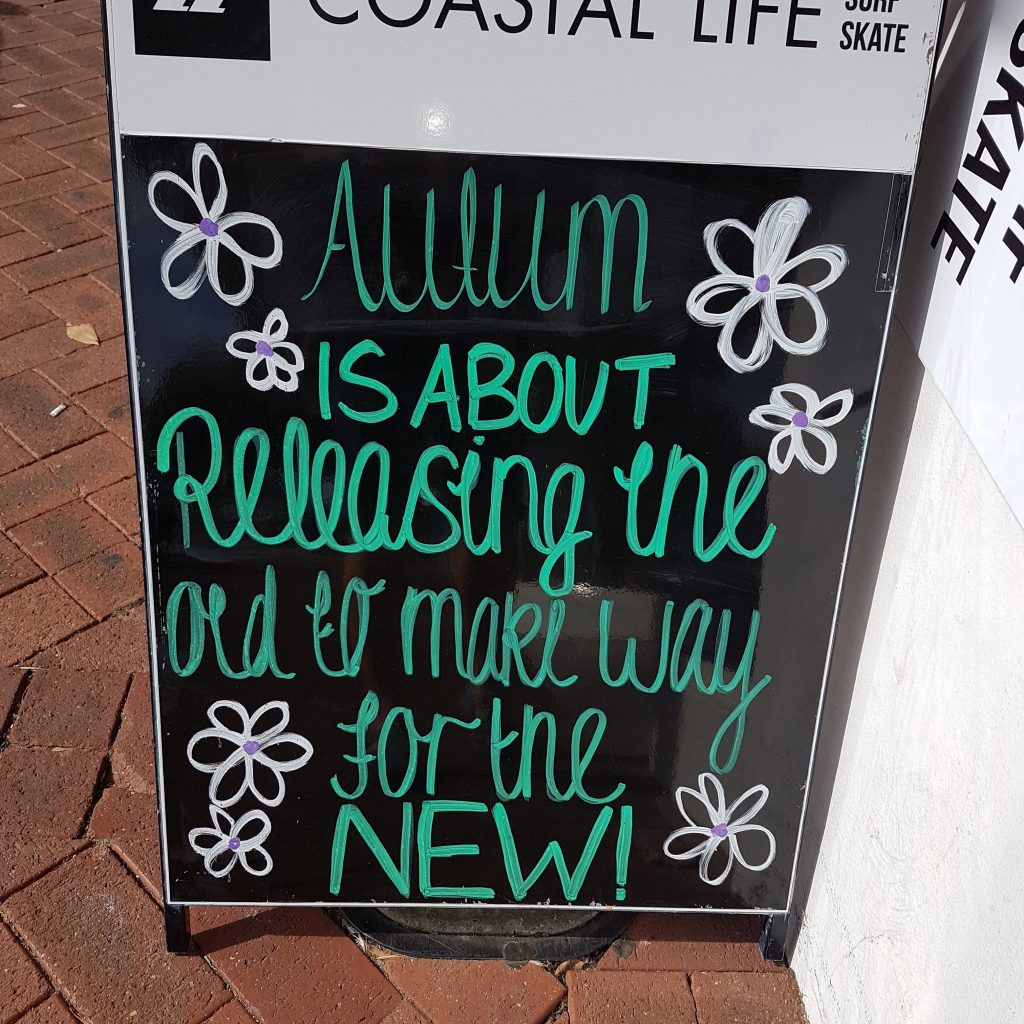 COASTAL LIFE SURF
SKATE
SKATE
Autum
IS ABOUT
Releasing the
old to make way
for the
NEW!